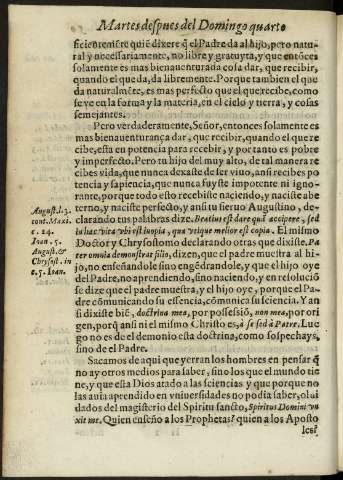 Martes despues del Domingo quarto
ficiẽtemẽte quiẽ dixere q̃ el Padre da al hijo, pero natu-
ral y necessariamente, no libre y gratuyta, y que entõces
solamente es mas bienauenturada cosa dar, que recibir,
quando el que da, da libremente. Porque tambien el que
da naturalmẽte, es mas perfecto que el que recibe, como
se ve en la forma y la materia, en el cielo y tierra, y cosas
semejantes.
Pero verdaderamente, Señor, entonces solamente es
mas bienauenturança dar, que recibir, quando el que re
cibe, esta en potencia para recebir, y por tanto es pobre
y imperfecto. Pero tu hijo del muy alto, de tal manera re
cibes vida, que nunca dexaste de ser viuo, ansi recibes po
tencia y sapiencia, que nunca fuyste impotente ni igno-
rante, porque todo esto recebiste naciendo, y naciste ab e
terno, y naciste perfecto, y ansi tu sieruo Augustino, de-
clarando tus palabras dize. Beatius est dare quã accipere, sed
in hac vita vbi est inopia, qua vtique melior est copia. El mismo
Doctor y Chrysostomo declarando otras que dixiste. Pa
ter omnia demonstrat filio, dizen, que el padre muestra al hi-
jo, no enseñandole sino engẽdrandole, y que el hijo oye
del Padre, no aprendiendo, sino naciendo, y en resoluciõ
se dize que el padre muestra, y el hijo oye, porque el Pa-
dre cõmunicando su essencia, cõmunica su sciencia. Y an
si dixiste biẽ, doctrina mea, por possessiõ, non mea, por ori
gen, porq̃ ansi ni el mismo Christo es, à se sed à Patre. Lue
go no es de el demonio esta doctrina, como sospechays,
sino de el Padre.
Sacamos de aqui que yerran los hombres en pensar q̃
no ay otros medios para saber, sino los que el mundo tie
ne, y que esta Dios atado a las sciencias y que porque no
las aura aprendido en vniuersidades no podia saber, olui
dados del magisterio del Spiritu sancto, Spiritus Domini vn
xit me. Quien enseño a los Prophetas? quien a los Aposto
les?
August. l. 3.
cont. Maxi.
c. 14.
Ioan. 5.
August. &
Chrysost. in
c. 5. Ioan.